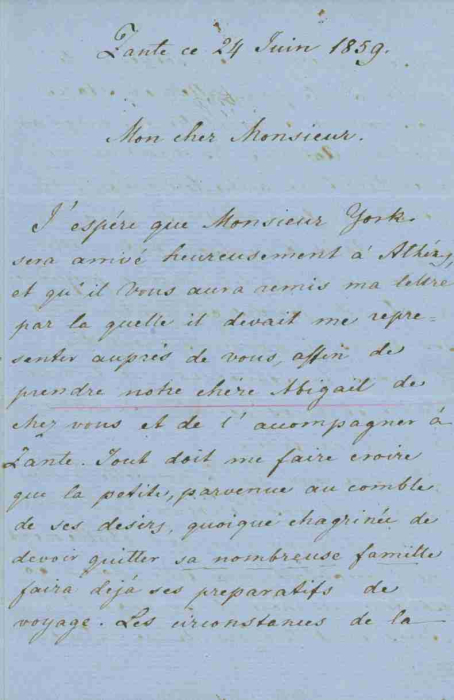 Zante ce 24 Juin 1859.
Mon cher Monsieur.
J'espére que Monsieur York
sera arrivé heureusement à Athéns,
et qu'il Vous aura remis ma lettre
par la quelle il devait me repre-
senter auprés de vous, affin de
prendre notre chère Abigail de
chez vous et de l'accompagner à
Zante. Tout doit me faire croire
que la petite, parvenue au comble
de ses desirs, quoique chagrinée de
devoir quitter sa nombreuse famille
faira déjà ses preparatifs de
voyage. Les circonstances de la